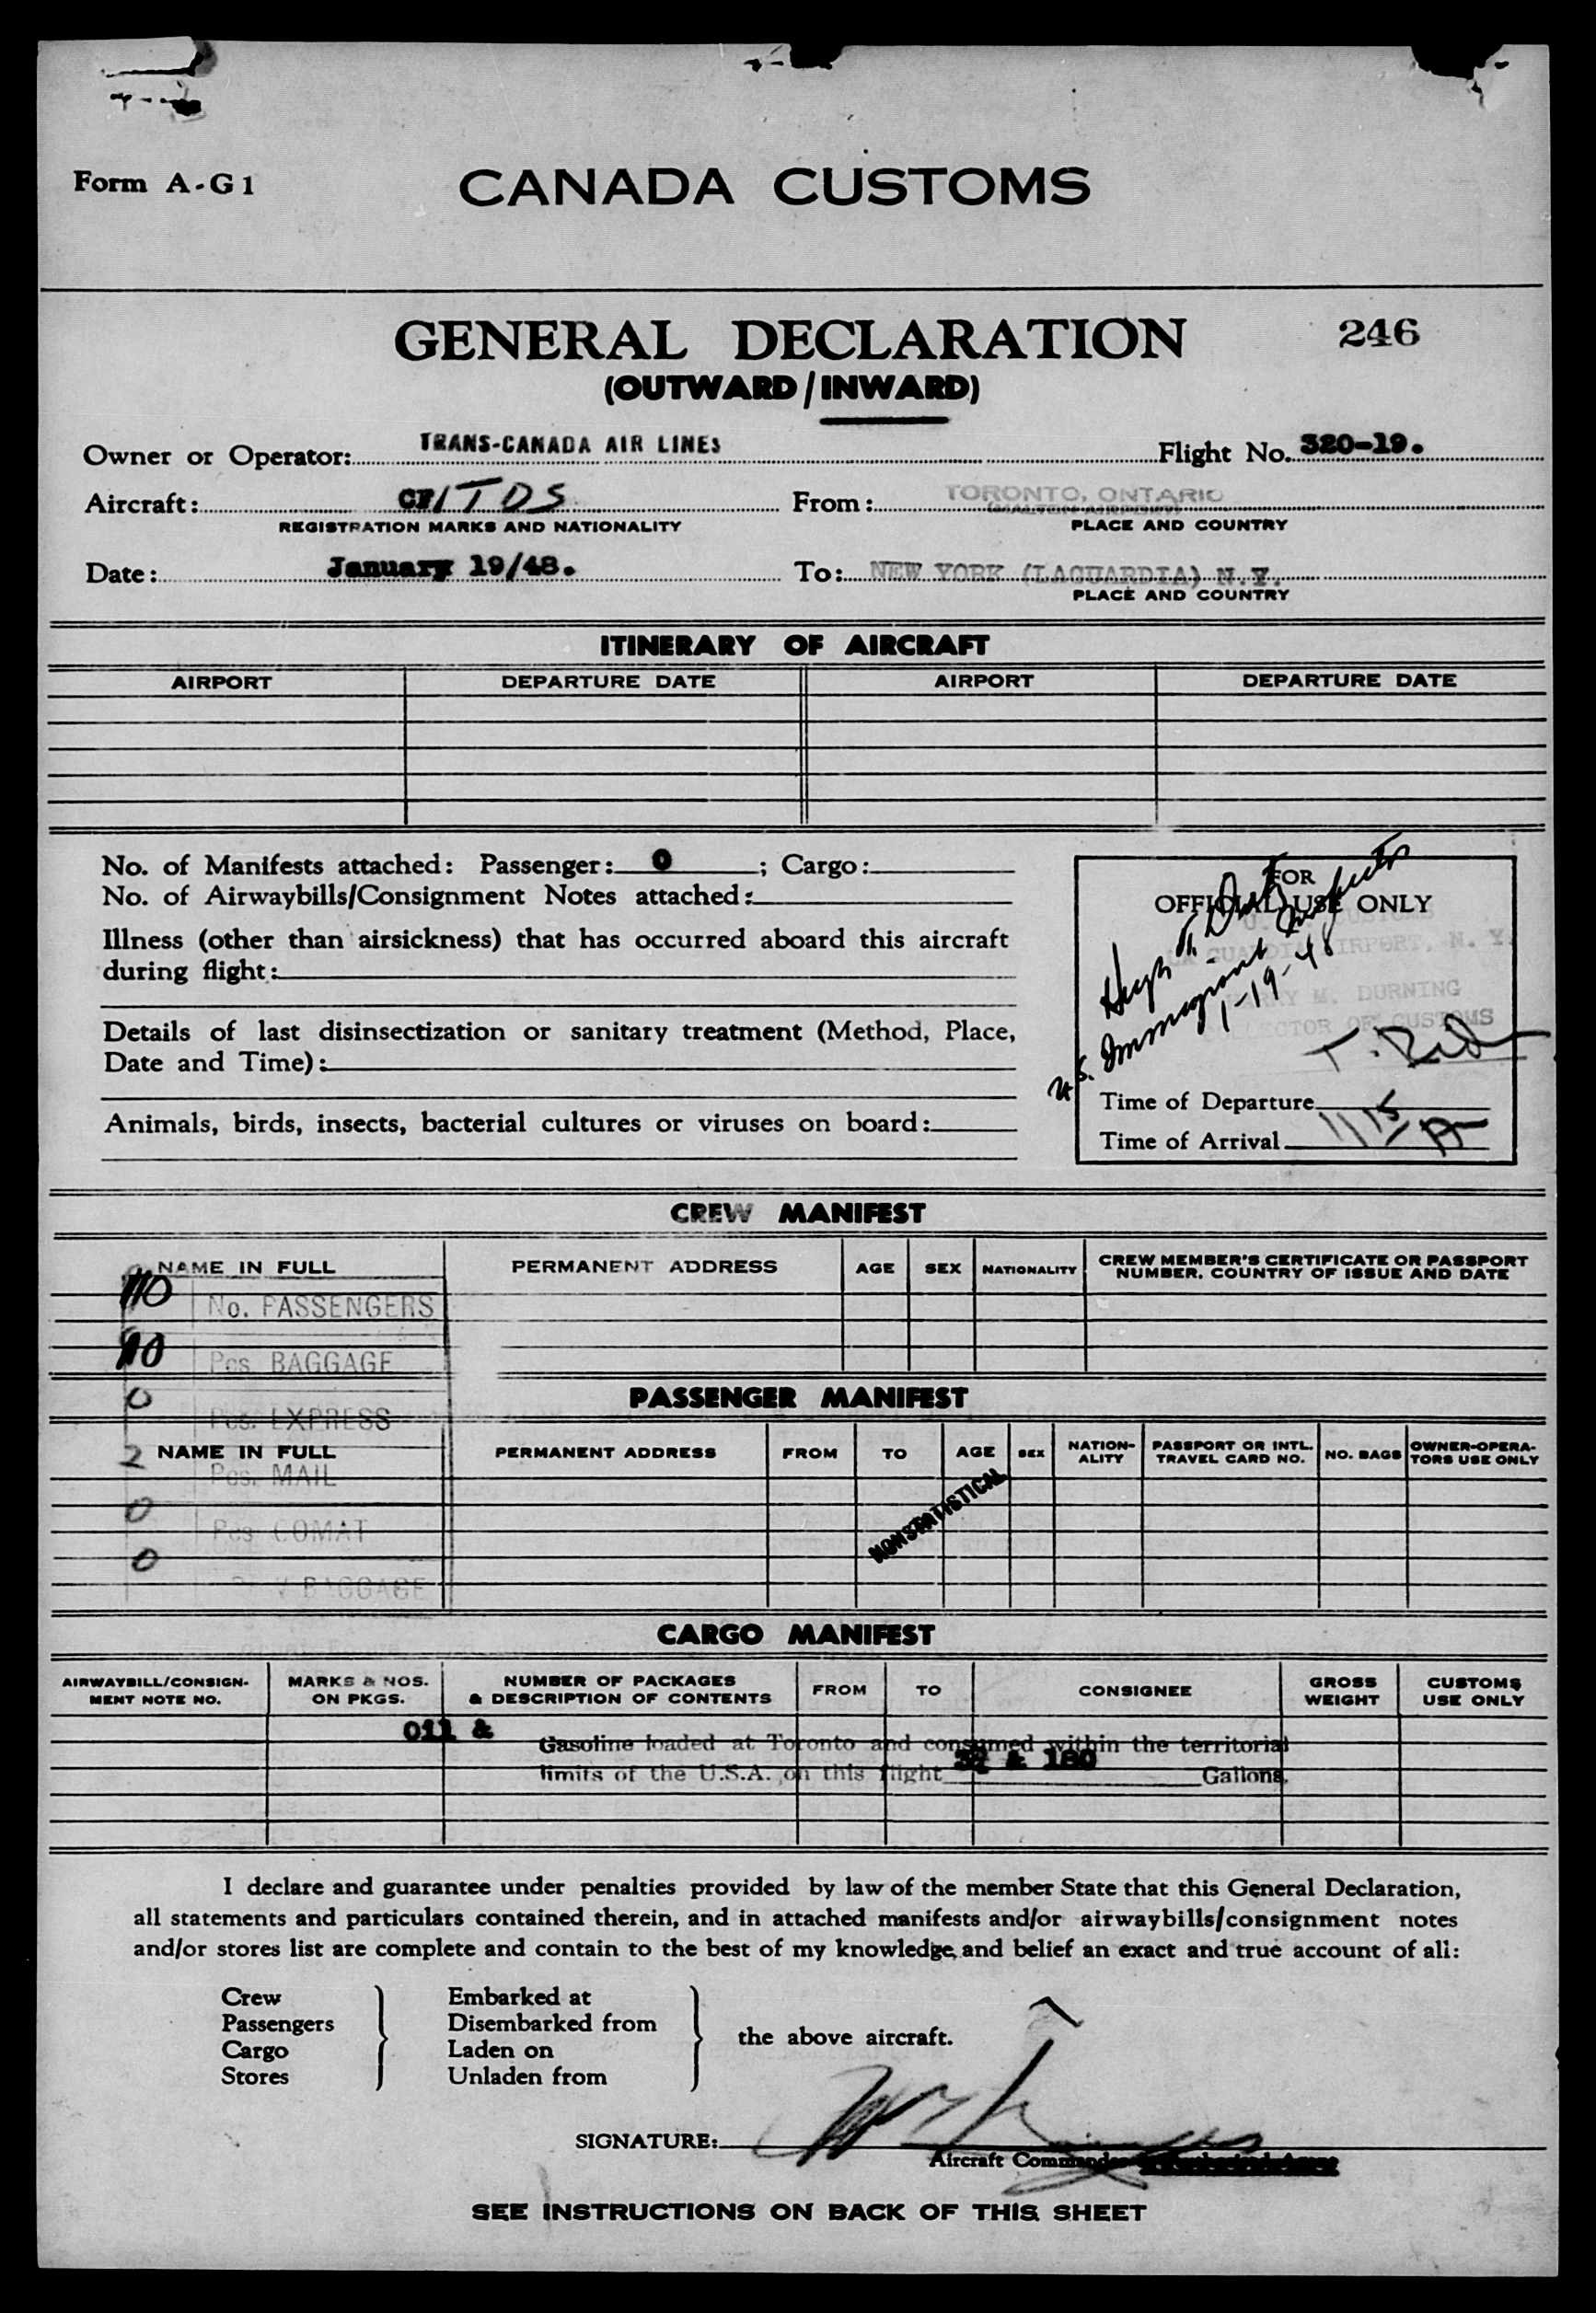 Form A-G1
CANADA CUSTOMS
GENERAL DECLARATION 246
(OUTWARD/INWARD)
Owner or Operator: TRANS-CANADA AIR LINES Flight No. 320-19.
Aircraft: CF/TDS From: TORONTO, ONTARIO
(MALTON AIRPORT)
REGISTRATION MARKS AND NATIONALITY PLACE AND COUNTRY
Date: January 19/48. To: NEW YORK (LAGUARDIA) N.Y.
PLACE AND COUNTRY
ITINERARY OF AIRCRAFT
AIRPORT DEPARTURE DATE AIRPORT DEPARTURE DATE
No. of Manifests attached: Passenger: 0 ; Cargo:
No. of Airwaybills/Consignment Notes attached:
Illness (other than airsickness) that has occurred aboard this aircraft
during flight:
Details of last disinsectization or sanitary treatment (Method, Place,
Date and Time):
Animals, birds, insects, bacterial cultures or viruses on board:
FOR
OFFICIAL USE ONLY
CUSTOMS
LA GUARDIA AIRPORT, N. Y.
HARRY M. DURNING
COLLECTOR OF CUSTOMS
Hugh
U.S. Immigrant Inspector
1-19-48
Time of Departure
Time of Arrival 11 15
CREW MANIFEST
NAME IN FULL PERMANENT ADDRESS AGE SEX NATIONALITY CREW MEMBER'S CERTIFICATE OR PASSPORT
NUMBER, COUNTRY OF ISSUE AND DATE
10 No. PASSENGERS
10 Pcs BAGGAGE
0 Pcs. EXPRESS
2 Pcs. MAIL
0 Pcs COMAT
0 BAGGAGE
PASSENGER MANIFEST
NAME IN FULL PERMANENT ADDRESS FROM TO AGE SEX NATION-
ALITY PASSPORT OR INTL.
TRAVEL CARD NO. NO. BAGS OWNER-OPERA-
TORS USE ONLY
NONSTATISTICAL
CARGO MANIFEST
AIRWAYBILL/CONSIGN-
MENT NOTE NO. MARKS & NOS.
ON PKGS. NUMBER OF PACKAGES
& DESCRIPTION OF CONTENTS FROM TO CONSIGNEE GROSS
WEIGHT CUSTOMS
USE ONLY
Oil &
Gasoline loaded at Toronto and consumed within the territorial
limits of the U.S.A. on this flight & 180 Gallons.
I declare and guarantee under penalties provided by law of the member State that this General Declaration,
all statements and particulars contained therein, and in attached manifests and/or airwaybills/consignment notes
and/or stores list are complete and contain to the best of my knowledge and belief an exact and true account of all:
Crew Embarked at
Passengers Disembarked from
the above aircraft.
Cargo Laden on
Stores Unladen from
SIGNATURE:
Aircraft Commander
SEE INSTRUCTIONS ON BACK OF THIS SHEET